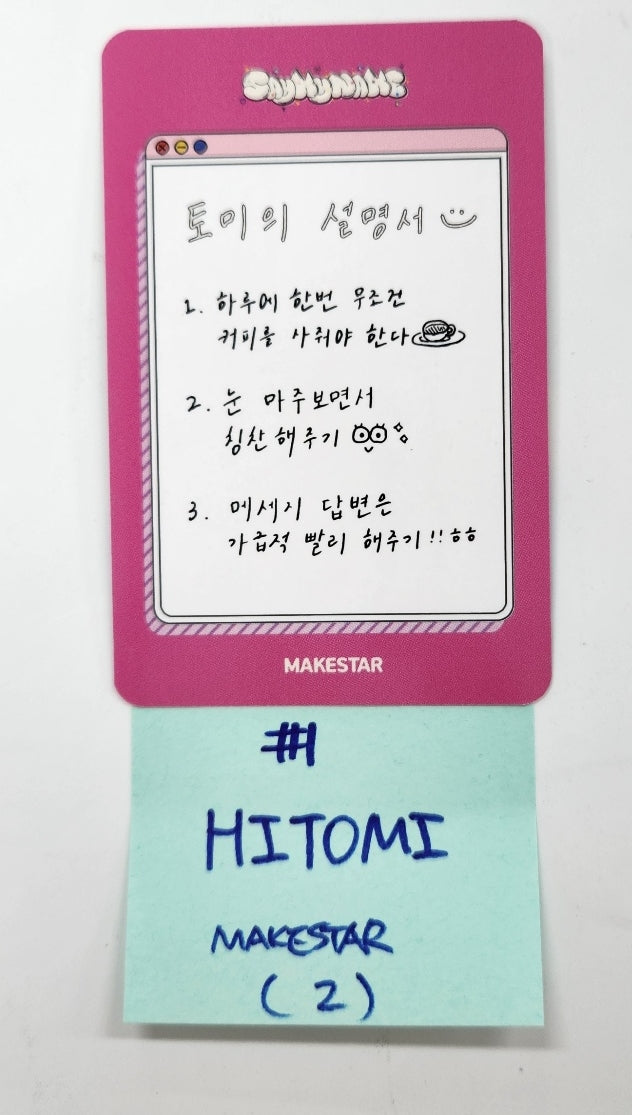 SAYMYNAME
토미의 설명서
1. 하루에 한번 무조건
커피를 사줘야 한다
2. 눈 마주보면서
칭찬해주기
3. 메세지 답변은
가급적 빨리 해주기!! ㅎㅎ
MAKESTAR
#1
HITOMI
MAKESTAR
(2)